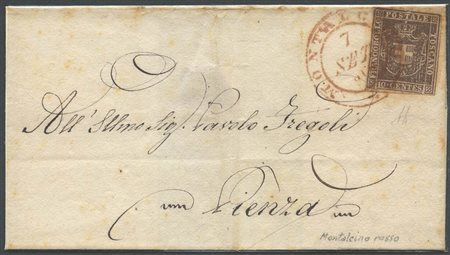 MONTALC
7
SET
FRANCOBOLLO
POSTALE
TOSCANO
10 CENTES
All' Illmo Sig. Paolo Fregoli
Pienza
Montalcino rosso